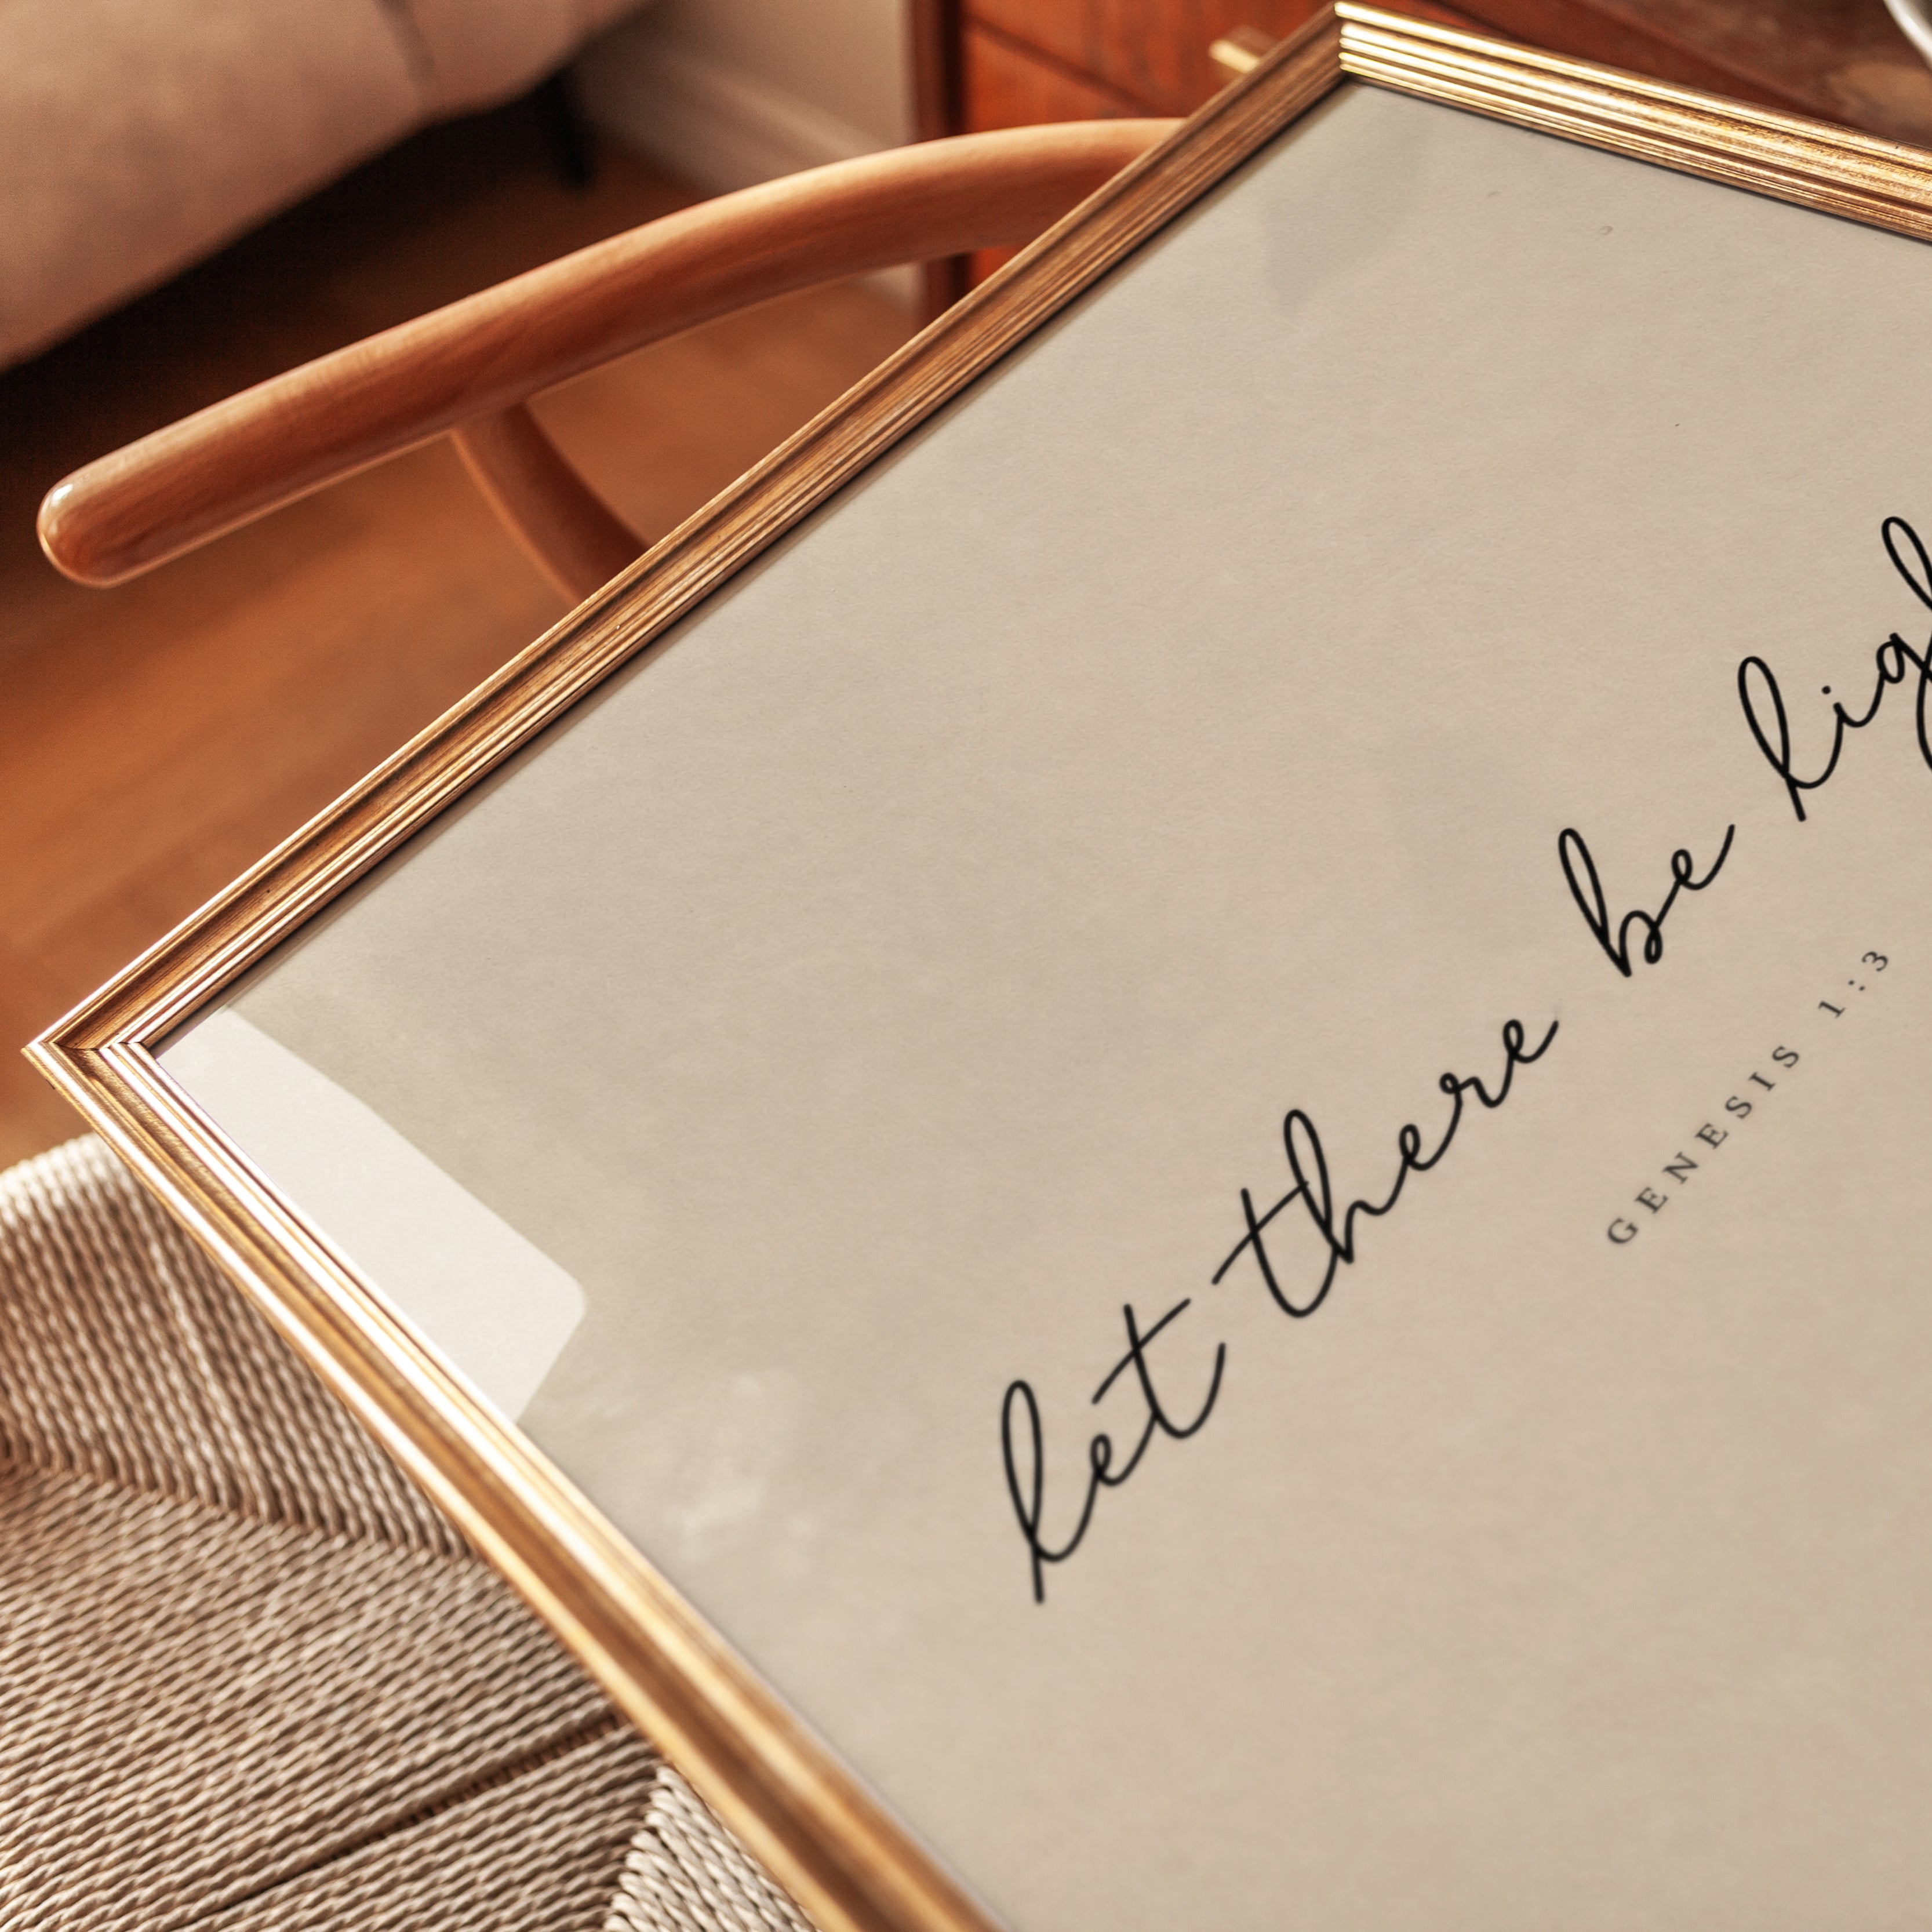 let there be ligh
GENESIS 1:3